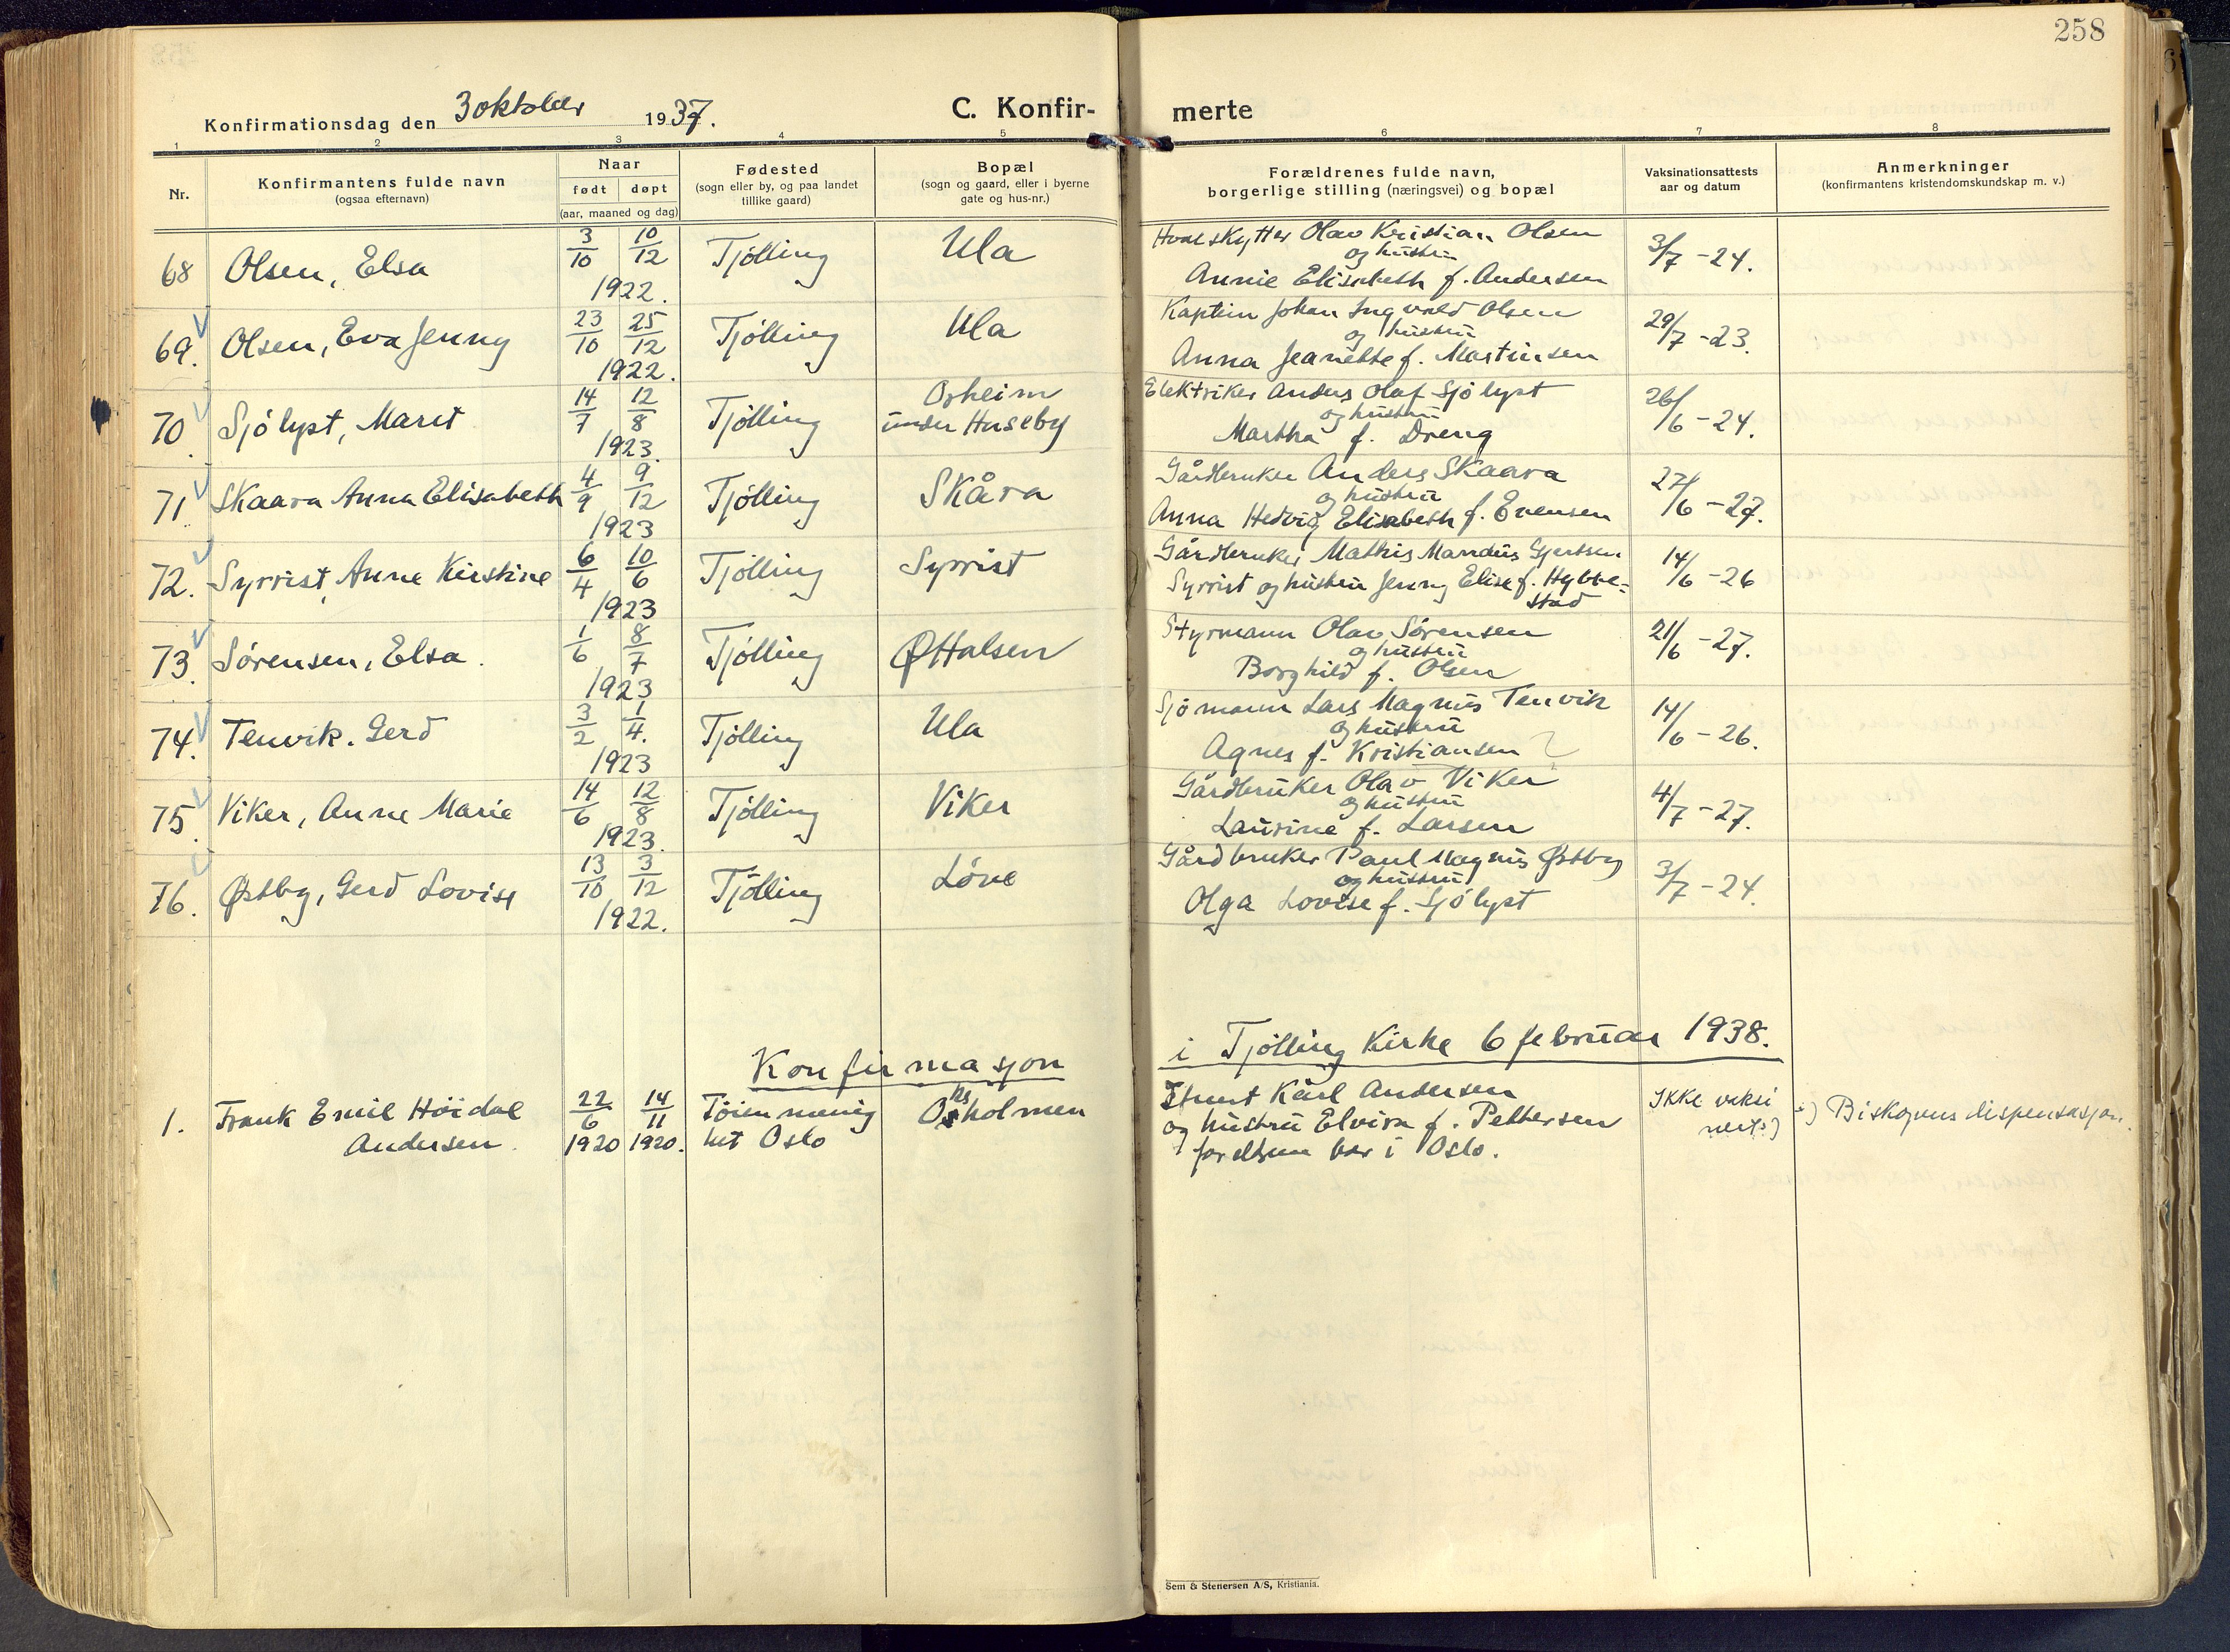 258
Konfirmationsdag den 3 oktober 1937.
C. Konfir-
merte
1 2 3 4 5 6 7 8
Nr.
Konfirmantens fulde navn
(ogsaa efternavn)
Naar
født døpt
(aar, maaned og dag)
Fødested
(sogn eller by, og paa landet
tillike gaard)
Bopæl
(sogn og gaard, eller i byerne
gate og hus-nr.)
Forældrenes fulde navn,
borgerlige stilling (næringsvei) og bopæl
Vaksinationsattests
aar og datum
Anmerkninger
(konfirmantens kristendomskundskap m. v.)
68 Olsen, Elsa 3/10 10/12 1922. Tjølling Ula
Hvalskytter Olav Kristian Olsen
og hustru
Annie Elisabeth f. Andersen
3/7 - 24.
69. Olsen, Eva Jenny 23/10 25/12 1922. Tjølling Ula
Kaptein Johan Ingvald Olsen
og hustru
Anna Jeanette f. Martinsen
29/7 - 23.
70. Sjølyst, Marit 14/7 12/8 1923. Tjølling
under Huseby
Elektriker Anders Olaf Sjølyst
og hustru
Martha f. Dreng
26/6 - 24.
71. Skaara Anna Elisabeth 4/9 9/12 1923 Tjølling Skåra
Gårdbruker Anders Skaara
og hustru
Anna Hedvig Elisabeth f. Evensen
27/6 - 27.
72. Syrrist, Anne Kirstine 6/4 10/6 1923 Tjølling Syrrist
Gårdbruker Mathis Mandius Gjertsen
Syrrist og hustru Jenny Elise f. Hybbe-
stad
14/6 - 26
73. Sørensen, Elsa. 1/6 8/7 1923 Tjølling Øttalsen
Styrmann Olav Sørensen
og hustru
Borghild f. Olsen
21/6 - 27.
74. Tenvik. Gerd 3/2 1/4. 1923 Tjølling Ula
Sjømann Lars Magnus Tenvik
og hustru
Agnes f. Kristiansen
14/6 - 26.
75. Viker, Anne Marie 14/6 12/8 1923. Tjølling Viker
Gårdbruker Olav Viker
og hustru
Laurine f. Larsen
4/7 - 27.
76. Østby, Gerd Lovise 13/10 3/12 1922. Tjølling Løve
Gårdbruker Paul Magnus Østby
og hustru
Olga Lovise f. Sjølyst
3/7 - 24.
Konfirmasjon
i Tjølling Kirke 6 februar 1938.
1. Frank Emil Höidal
Andersen
22/6 1920 14/11 1920.
Tøien menig
het Oslo
Karl Andersen
og hustru Elvira f. Pettersen
foreldrene bor i Oslo.
Ikke vaksi
nert
Biskopens dispensasjon.
Sem & Stenersen A/S, Kristiania.